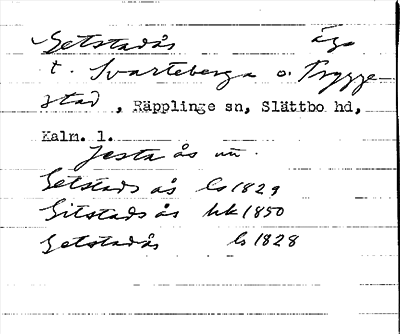 Getstadås äga
t. Svarteberga o. Trygge-
stad, Räpplinge sn, Slättbo hd,
Kalm. l.
Jesta ås uu.
Getstads ås Ls 1829
Gitstads ås hk 1850
Getstadås ls 1828